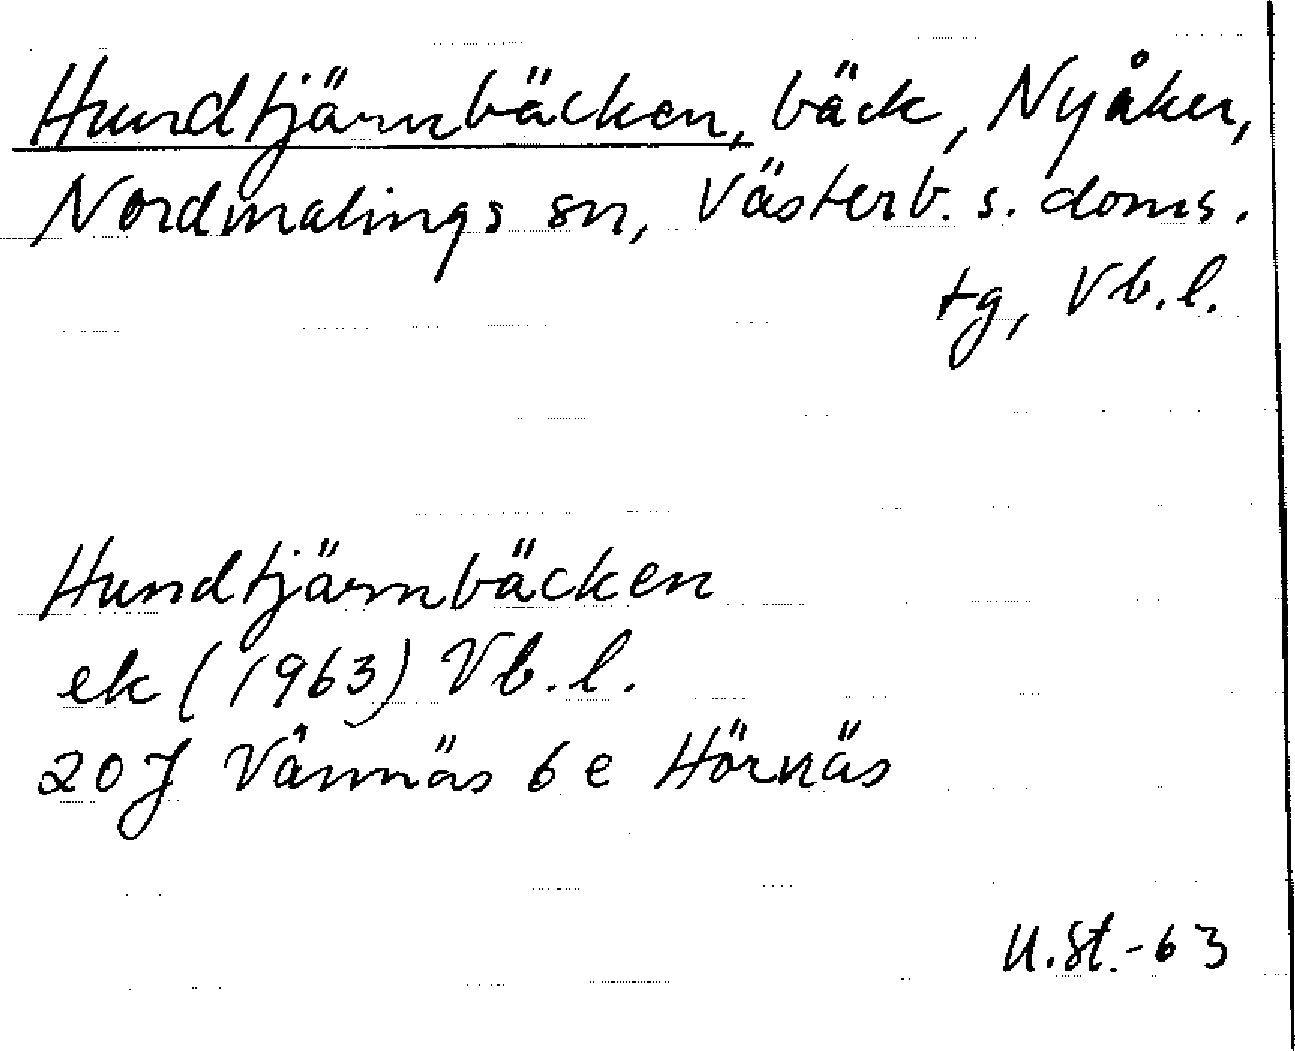 Hundtjärnbäcken, bäck, Nyåker,
Nordmalings sn, Västerb. s. doms.
tg, Vb. l.
Hundtjärnbäcken
ek (1963) Vb. l.
20J Vännäs 6e Hörnäs
U. St. -63